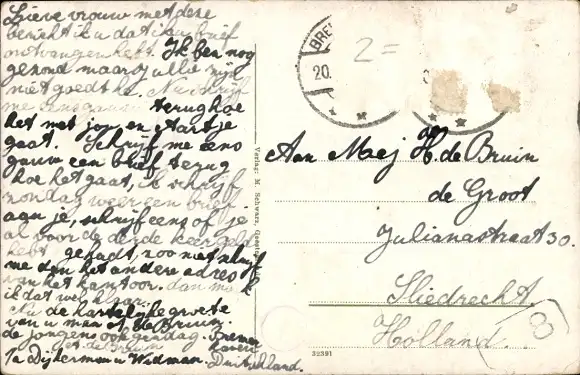 Lieve vrouw met deze
bericht ik u dat ik uw brief
ontvangen hebt. Ik ben nog
gezond maar jullie zijn
niet goed he. Nu schrijf
me eens gauw terug hoe
het met jop en Aartje
gaat. Schrijf me eens
gauw een brief terug
hoe het gaat, ik schrijf
zondag weer een brief
aan je, schrijf eens of je
al voor de derde keer geld
hebt gehad, zoo niet schrijf
me dan het andere adres
van het kantoor. dan
ik dat
Nu de hartelijke groete
van u man A. de Bruin.
de jongens ook gendag.
A de Bruin
Bremer
haven
Dijkerman u Widman. Duitschland.
BRE
20.
2=
Aan Mej H. de Bruin
de Groot
Julianastraat 30.
Sliedrecht.
Holland.
8
Verlag: M. Schwarz,
32391